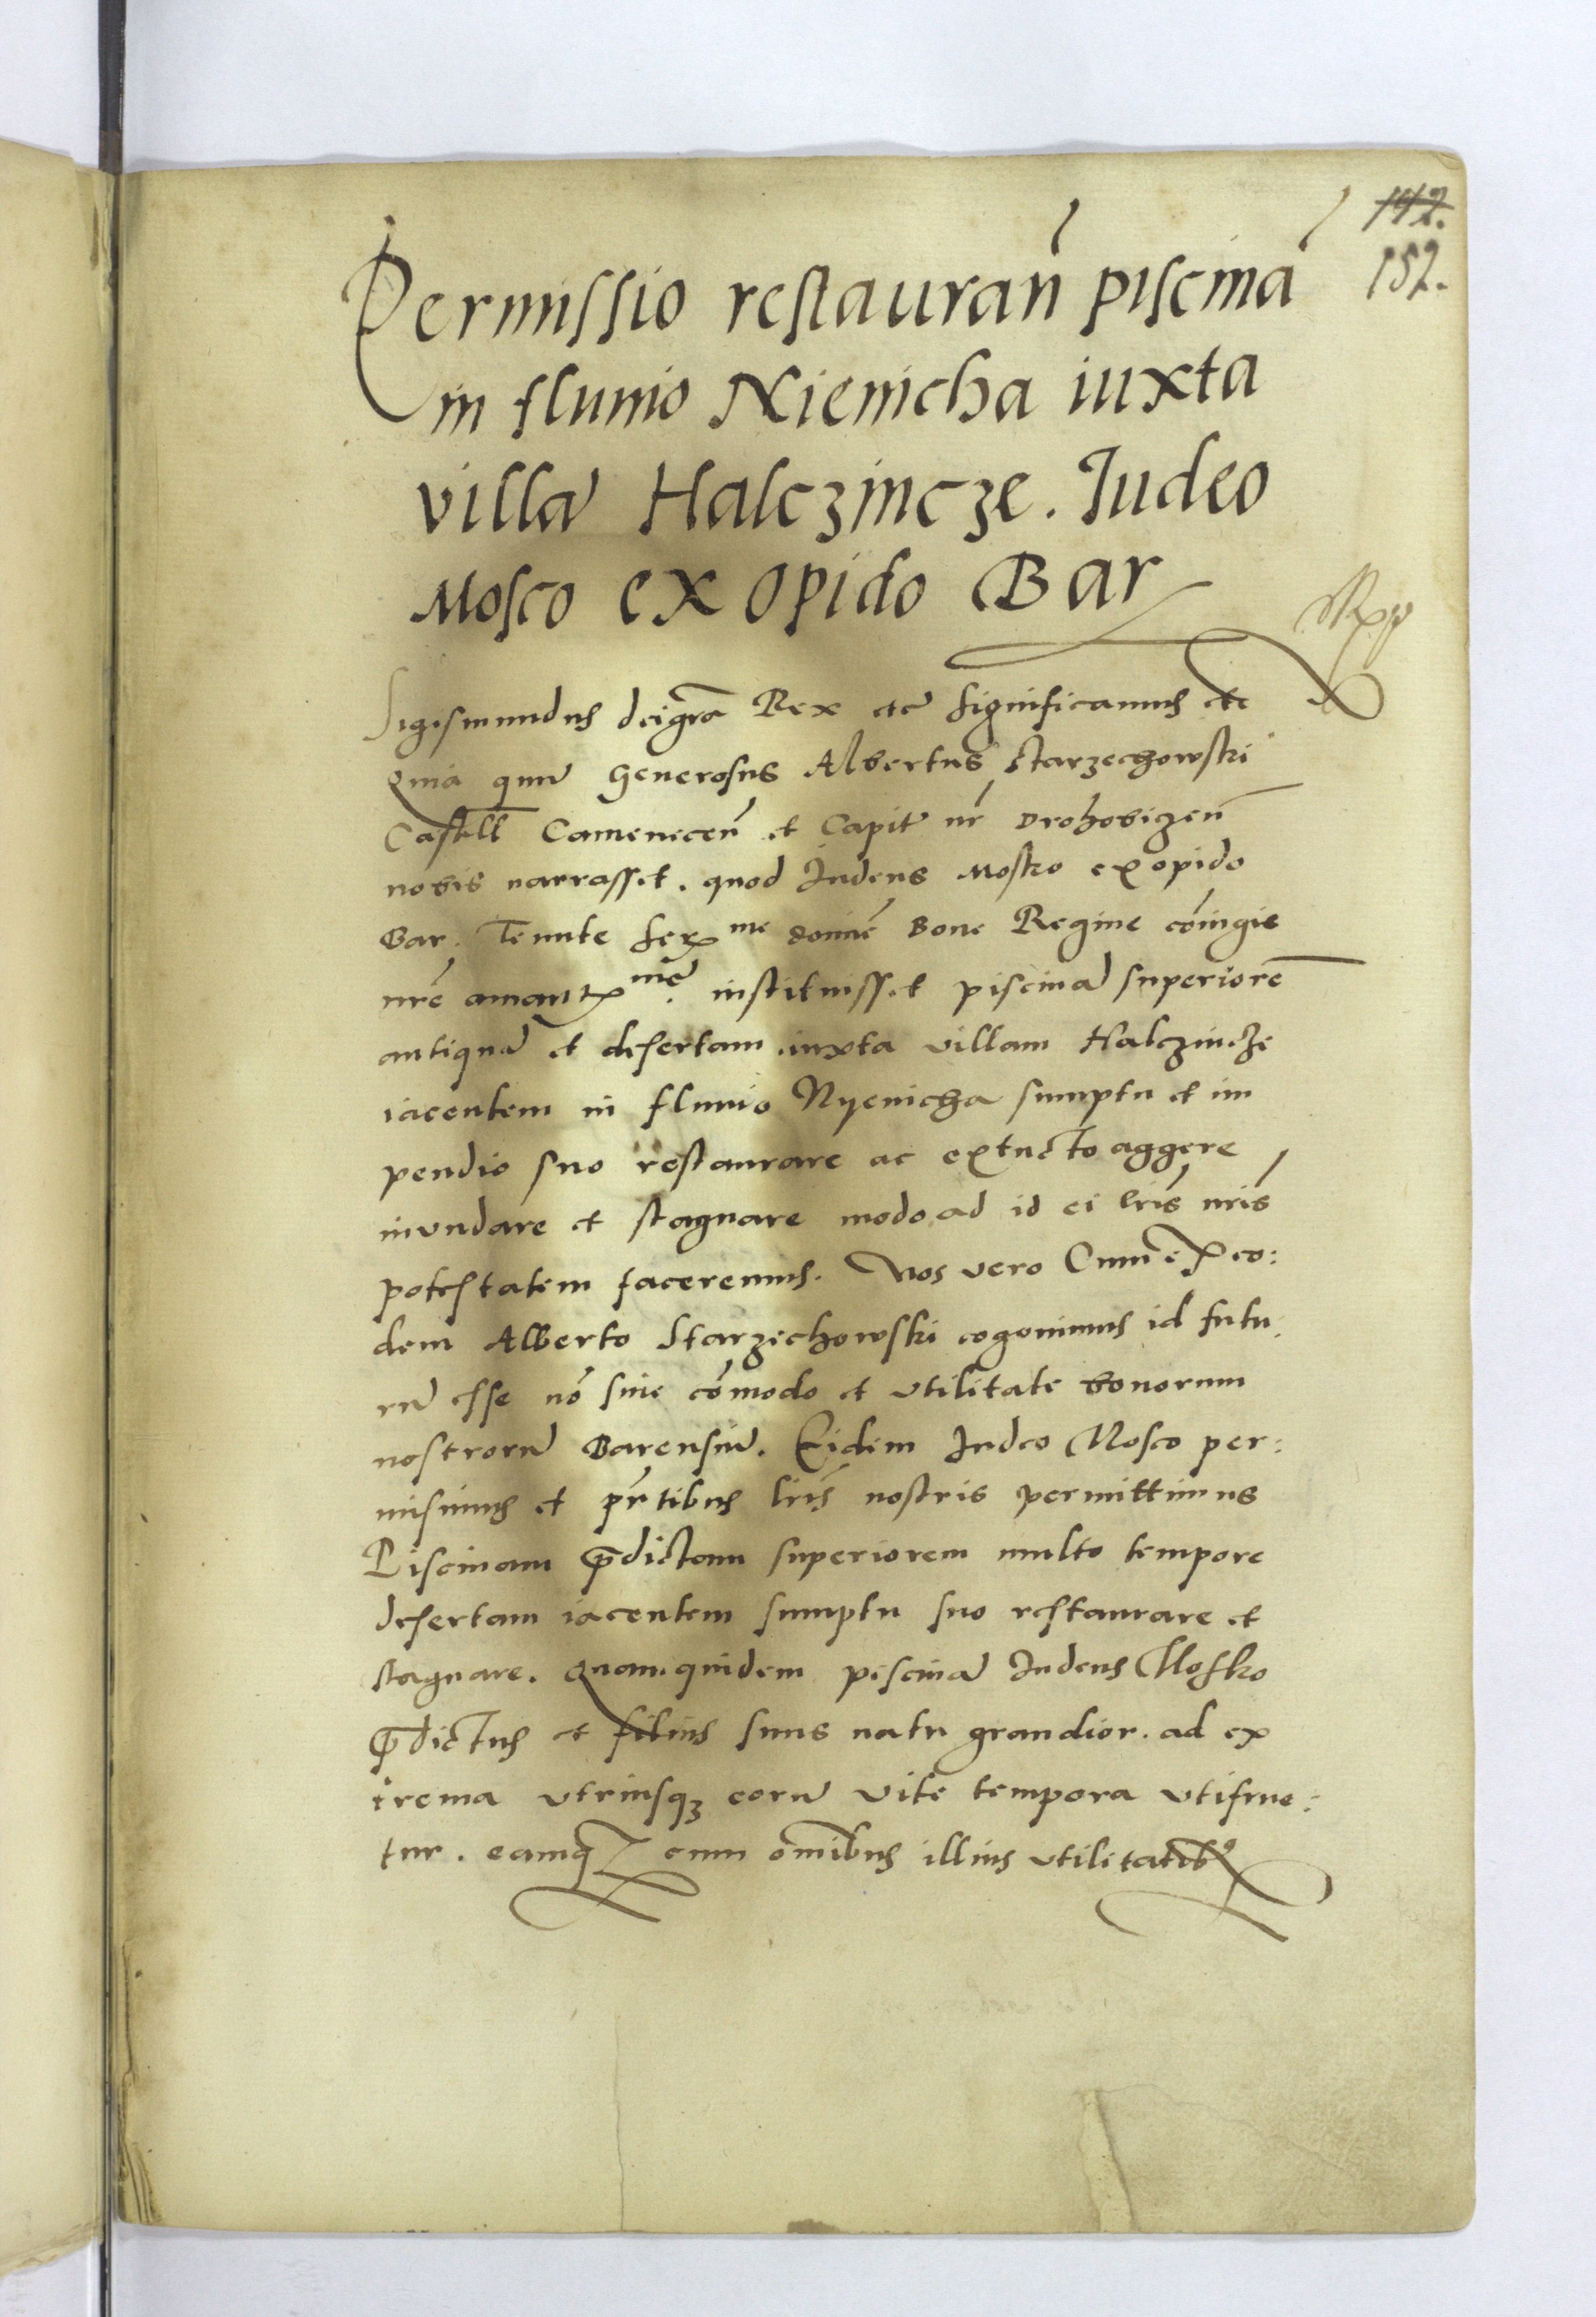 142.
152.
Permissio restaurañ piscinã
in fluuio Nienicha iuxta
villã Halczincze. Iudeo
Mosco ex opido Bar
Sigismundus dei grã Rex etc̃ significamus etc
Quia quũ Generosus Albertus Starzechowski
Castell̃ Camenecen̄ et Capit̃ nr̃ Drohobiczen̄
nobis narrasset. quod Iudeus Mosko ex opido
Bar. Tenute ser. me domĩe Bone Regine cõiugis
nrẽ amant. mẽ instituisset piscinã superiorẽ
antiquã et desertam iuxta villam Halczincze
iacentem in fluuio Nyenicha sumptu et im
pendio suo restaurare ac extructo aggere
inundare et stagnare modo ad id ei lrĩs nrĩs
potestatem faceremus. Nos vero Cum ex eo:
dem Alberto Starzechowski cognouimus id futu:
rũ esse nõ sine cõmodo et vtilitate bonorum
nostrorũ Barensiũ. Eidem Iudeo Mosco per:
misimus et pñtibus lrĩs nostris permittimus
Piscinam p̃dictam superiorem multo tempore
desertam iacentem sumptu suo restaurare et
stagnare. Quam quidem piscinã Iudeus Mosko
p̃dictus et filius suus natu grandior. ad ex
trema vtriusqꝫ eorũ vite tempora vtifrue:
tur. eamqꝫ cum om̃ibus illius vtilitatibꝰ